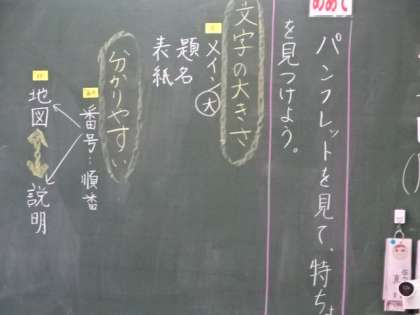 めあて
パンフレットを見て、持ち
を見つけよう。
文字の大きさ
メイン大
題名
表紙
分かりやすい
番号…順番
地図
説明